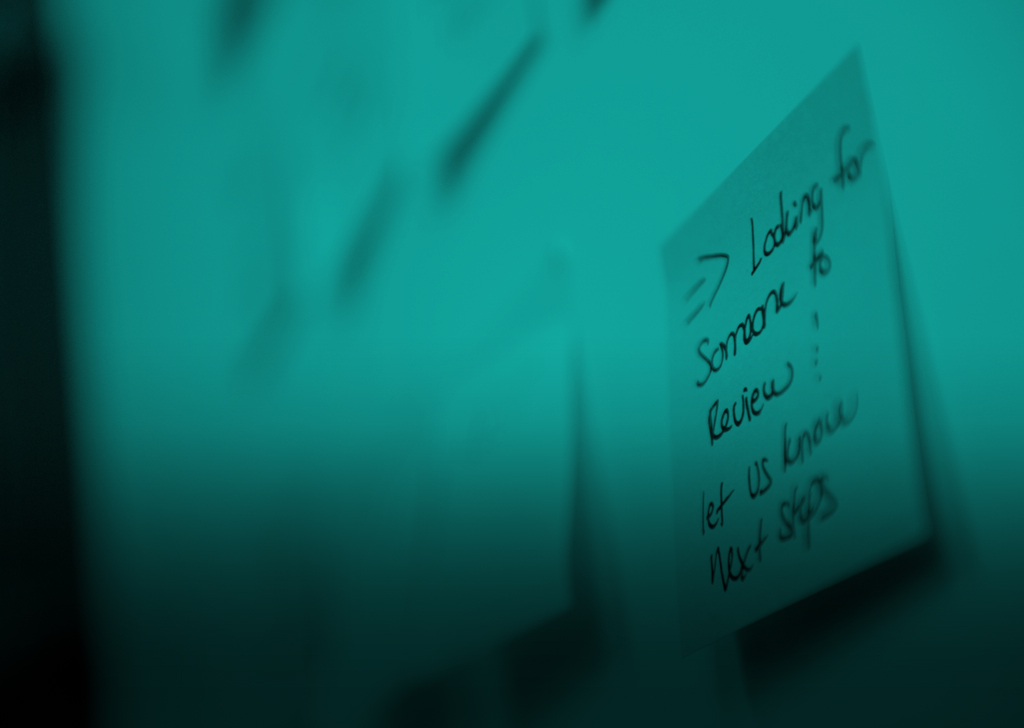 => Looking for
Someone to
Review !
let us know
Next steps